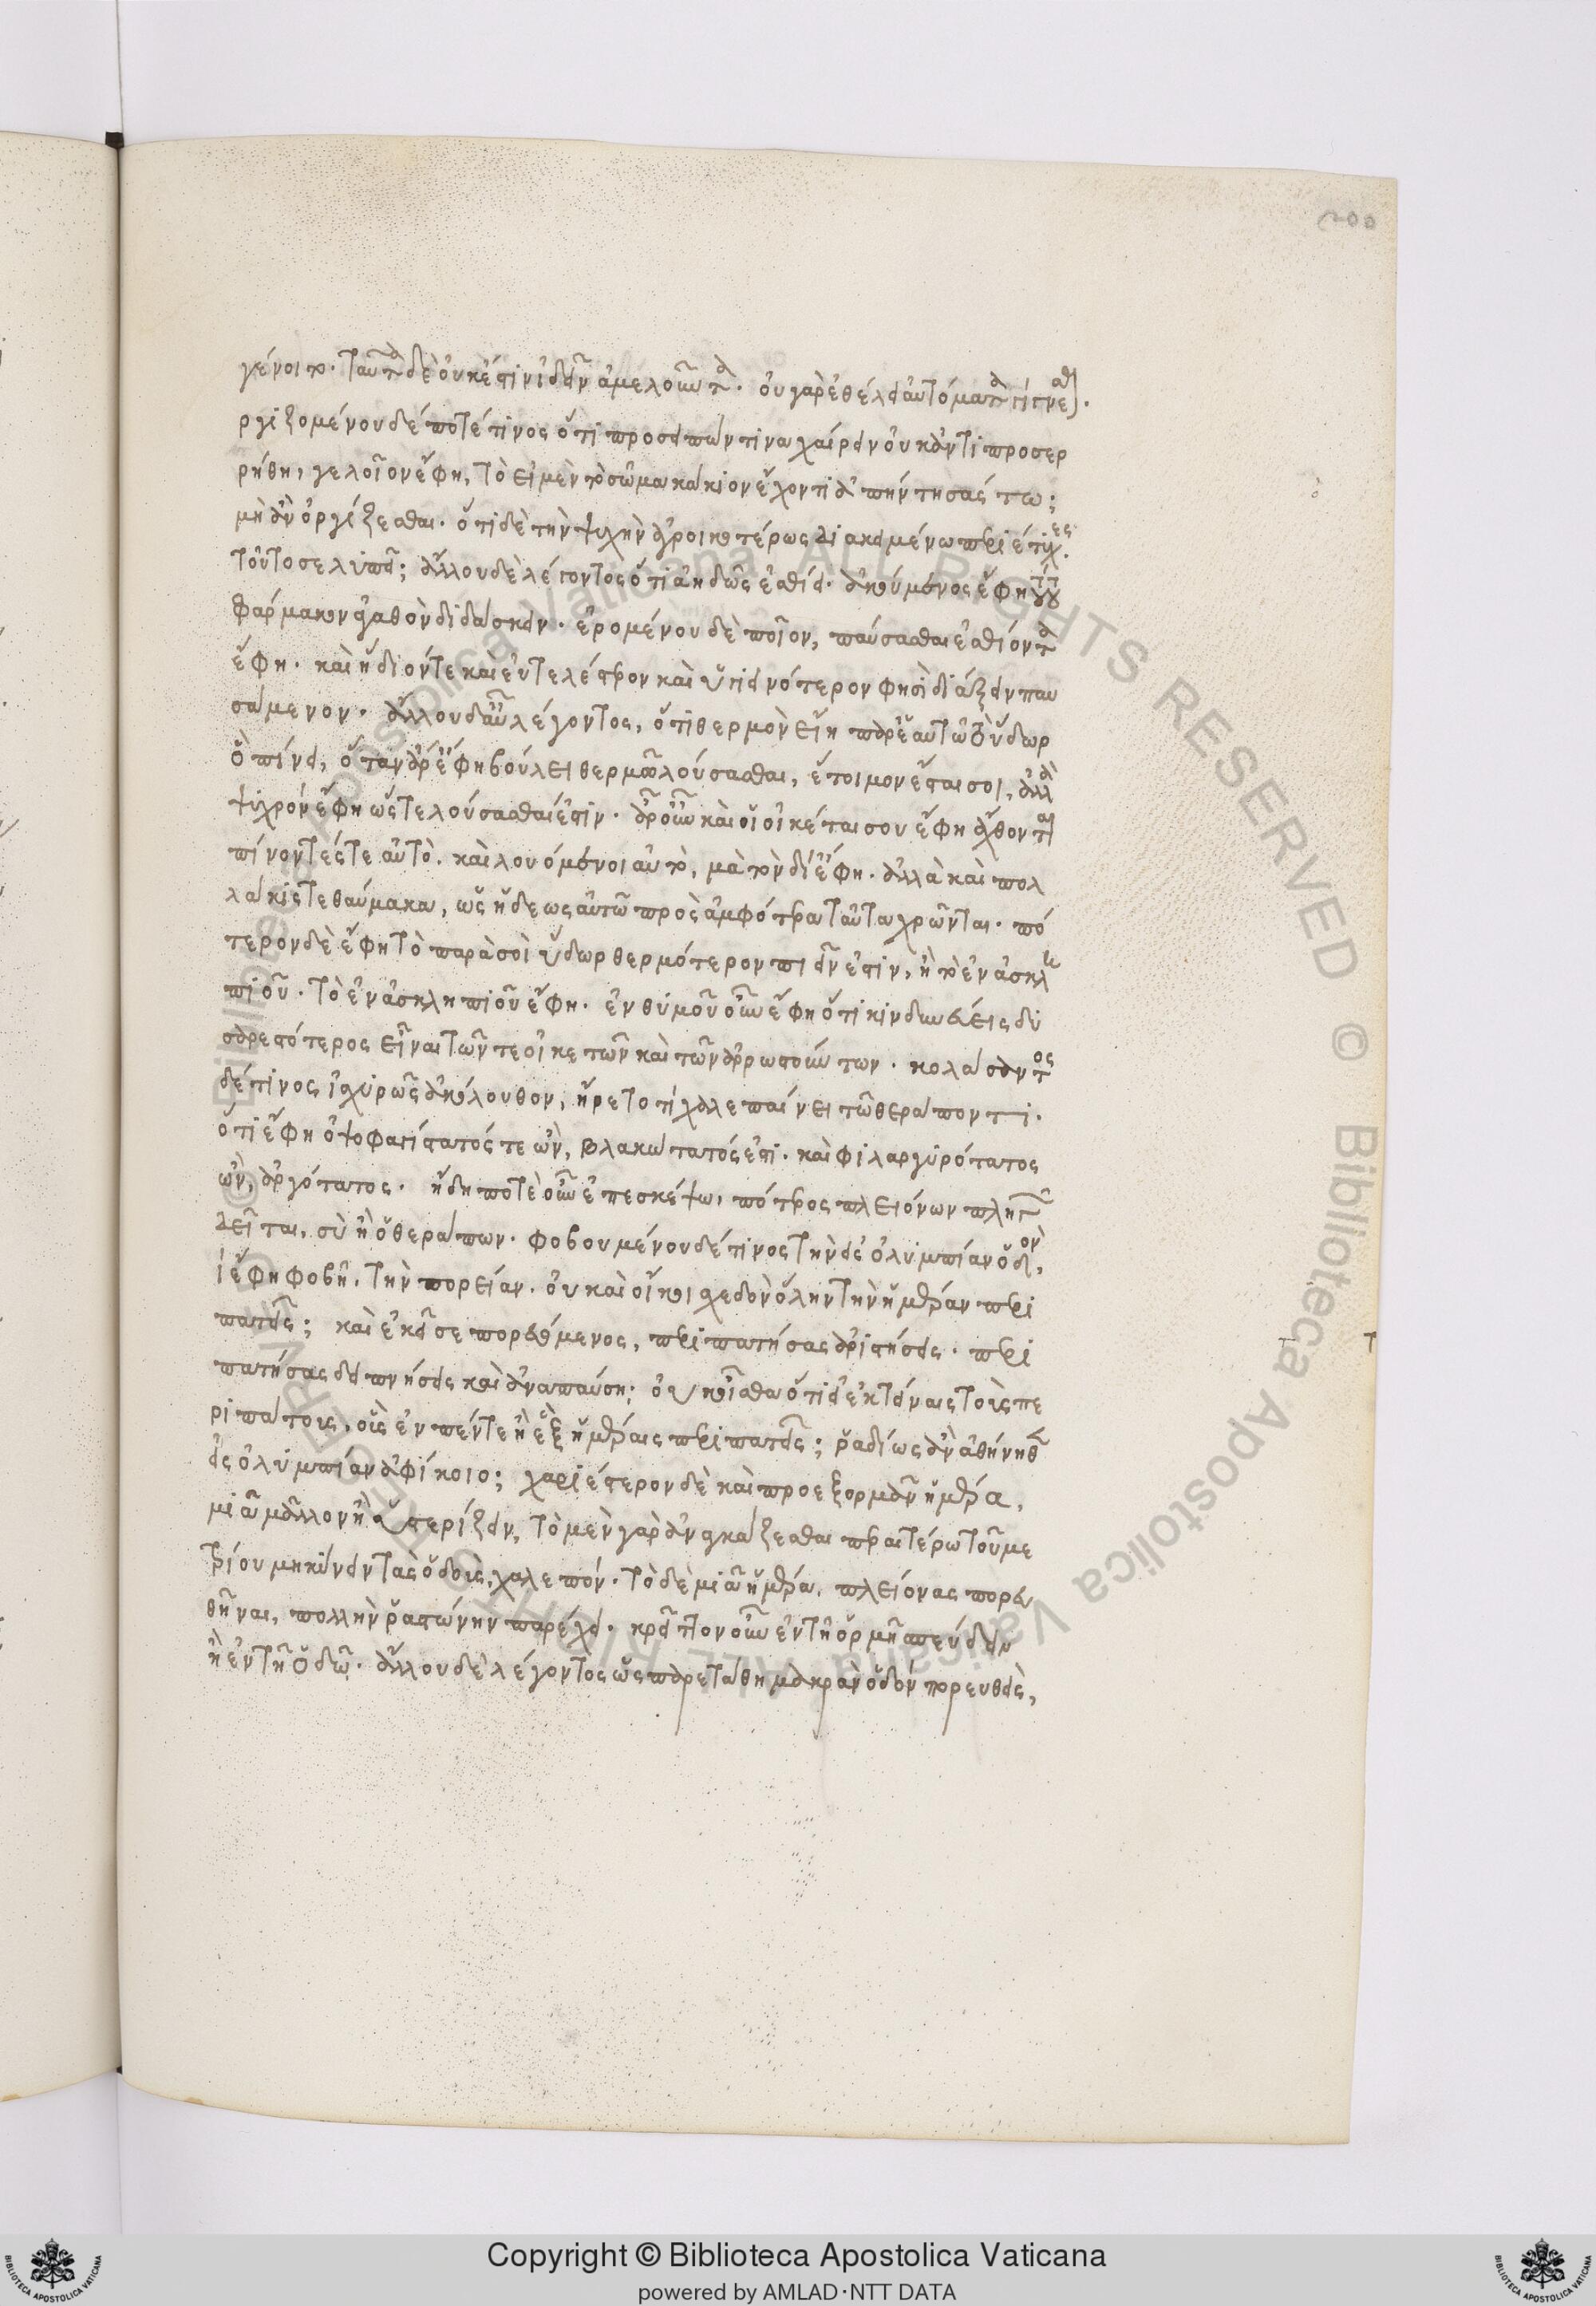 200
γένοιτο. ταῦτα δὲ οὐκ ἔστιν ἰδεῖν ἀμελοῦντα. οὐ γὰρ ἐθέλει αὐτόματα γίγνεσθαι.
ργιζομένου δέ ποτέ τινος ὅτι προσειπών τινα χαίρειν οὐκ ἀντιπροσερ
ρήθη, γελοῖον ἔφη, τὸ εἰ μὲν τὸ σῶμα κάκιον ἔχοντι ἀπήντησάς τω;
μὴ ἂν ὀργίζεσθαι. ὅτι δὲ τὴν ψυχὴν ἀγροικοτέρως διακειμένω περιέτυχες.
τοῦτό σε λυπεῖ; ἄλλου δὲ λέγοντος ὅτι ἀηδῶς ἐσθίει. ἀκούμενος ἔφη τούτου
φάρμακον ἀγαθὸν διδάσκειν. ἐρομένου δὲ ποῖον, παύσασθαι ἐσθίοντα
ἔφη. καὶ ἥδιόν τε καὶ εὐτελέστερον καὶ ὑγιεινότερον φησὶ διάξειν παυ
σάμενον. ἄλλου δ' αὖ λέγοντος, ὅτι θερμὸν εἴη παρ' ἑαυτῶ τὸ ὕδωρ
ὃ πίνει, ὅταν ἄρ' ἔφη βούλει θερμῶ λούσασθαι, ἕτοιμον ἔσται σοι, ἀλλὰ
ψυχρόν ἔφη ὥστε λούσασθαί ἐστιν. ἆρ' οὖν καὶ οἱ οἰκέται σου ἔφη ἄχθονται
πίνοντές τε αὐτὸ. καὶ λουόμενοι αὐτὸ, μὰ τὸν δί' ἔφη. ἀλλὰ καὶ πολ
λάκις τεθαύμακα, ὡς ἡδέως αὐτῶ πρὸς ἀμφότερα ταῦτα χρῶνται. πό
τερον δὲ ἔφη τὸ παρὰ σοὶ ὕδωρ θερμότερον πιεῖν ἐστίν, ἢ τὸ ἐν ἀσκλη
πιοῦ. τὸ ἐν ἀσκληπιοῦ ἔφη. ἐνθυμοῦ οὖν ἔφη ὅτι κινδυνεύεις δυ
σαρεστότερος εἶναι τῶν τε οἰκετῶν καὶ τῶν ἀρρωστούντων. κολάσαντος
δέ τινος ἰσχυρῶς ἀκόλουθον, ἤρετο τί χαλεπαίνει τῶ θεράποντι.
ὅτι ἔφη ὀψοφαγίστατός τε ὢν, βλακώτατός ἐστι. καὶ φιλαργυρότατος
ὢν, ἀργότατος. ἤδη ποτὲ οὖν ἐπεσκέψω, πότερος πλειόνων πληγῶν
δεῖται, σὺ ἢ ὁ θεράπων. φοβουμένου δέ τινος τὴν εἰς ὀλυμπίαν ὁδὸν,
ί ἔφη φοβῆ. τὴν πορείαν. οὐ καὶ οἴκοι σχεδὸν ὅλην τὴν ἡμέραν περι
πατεῖς; καὶ ἐκεῖσε πορευόμενος, περιπατήσας ἀριστήσεις. περι
πατήσας δειπνήσεις καὶ ἀναπαύση; οὐκ οἶσθα ὅτι εἰ ἐκτείναις τοὺς πε
ριπάτους, οὓς ἐν πέντε ἢ ἓξ ἡμέραις περιπατεῖς; ῥαδίως ἂν ἀθήνηθεν
εἰς ὀλυμπίαν ἀφίκοιο; χαριέστερον δὲ καὶ προεξορμᾶν ἡμέρα,
μιᾶ μᾶλλον ἢ ὑστερίζειν, τὸ μὲν γὰρ ἀναγκάζεσθαι περαιτέρω τοῦ με
τρίου μηκύνειν τὰς ὁδοὺς, χαλεπόν. τὸ δὲ μιᾶ ἡμέρα, πλείονας πορευ
θῆναι, πολλὴν ῥαστώνην παρέχει. κρεῖττον οὖν ἐν τῆ ὁρμῆ σπεύδειν
ἢ ἐν τῆ ὁδῶ. ἄλλου δὲ λέγοντος ὡς παρετάθη μακρὰν ὁδόν πορευθεὶς,
© Biblioteca Apostolica Vaticana. ALL RIGHTS RESERVED
Copyright © Biblioteca Apostolica Vaticana
powered by AMLAD·NTT DATA
BIBLIOTECA APOSTOLICA VATICANA
BIBLIOTECA APOSTOLICA VATICANA